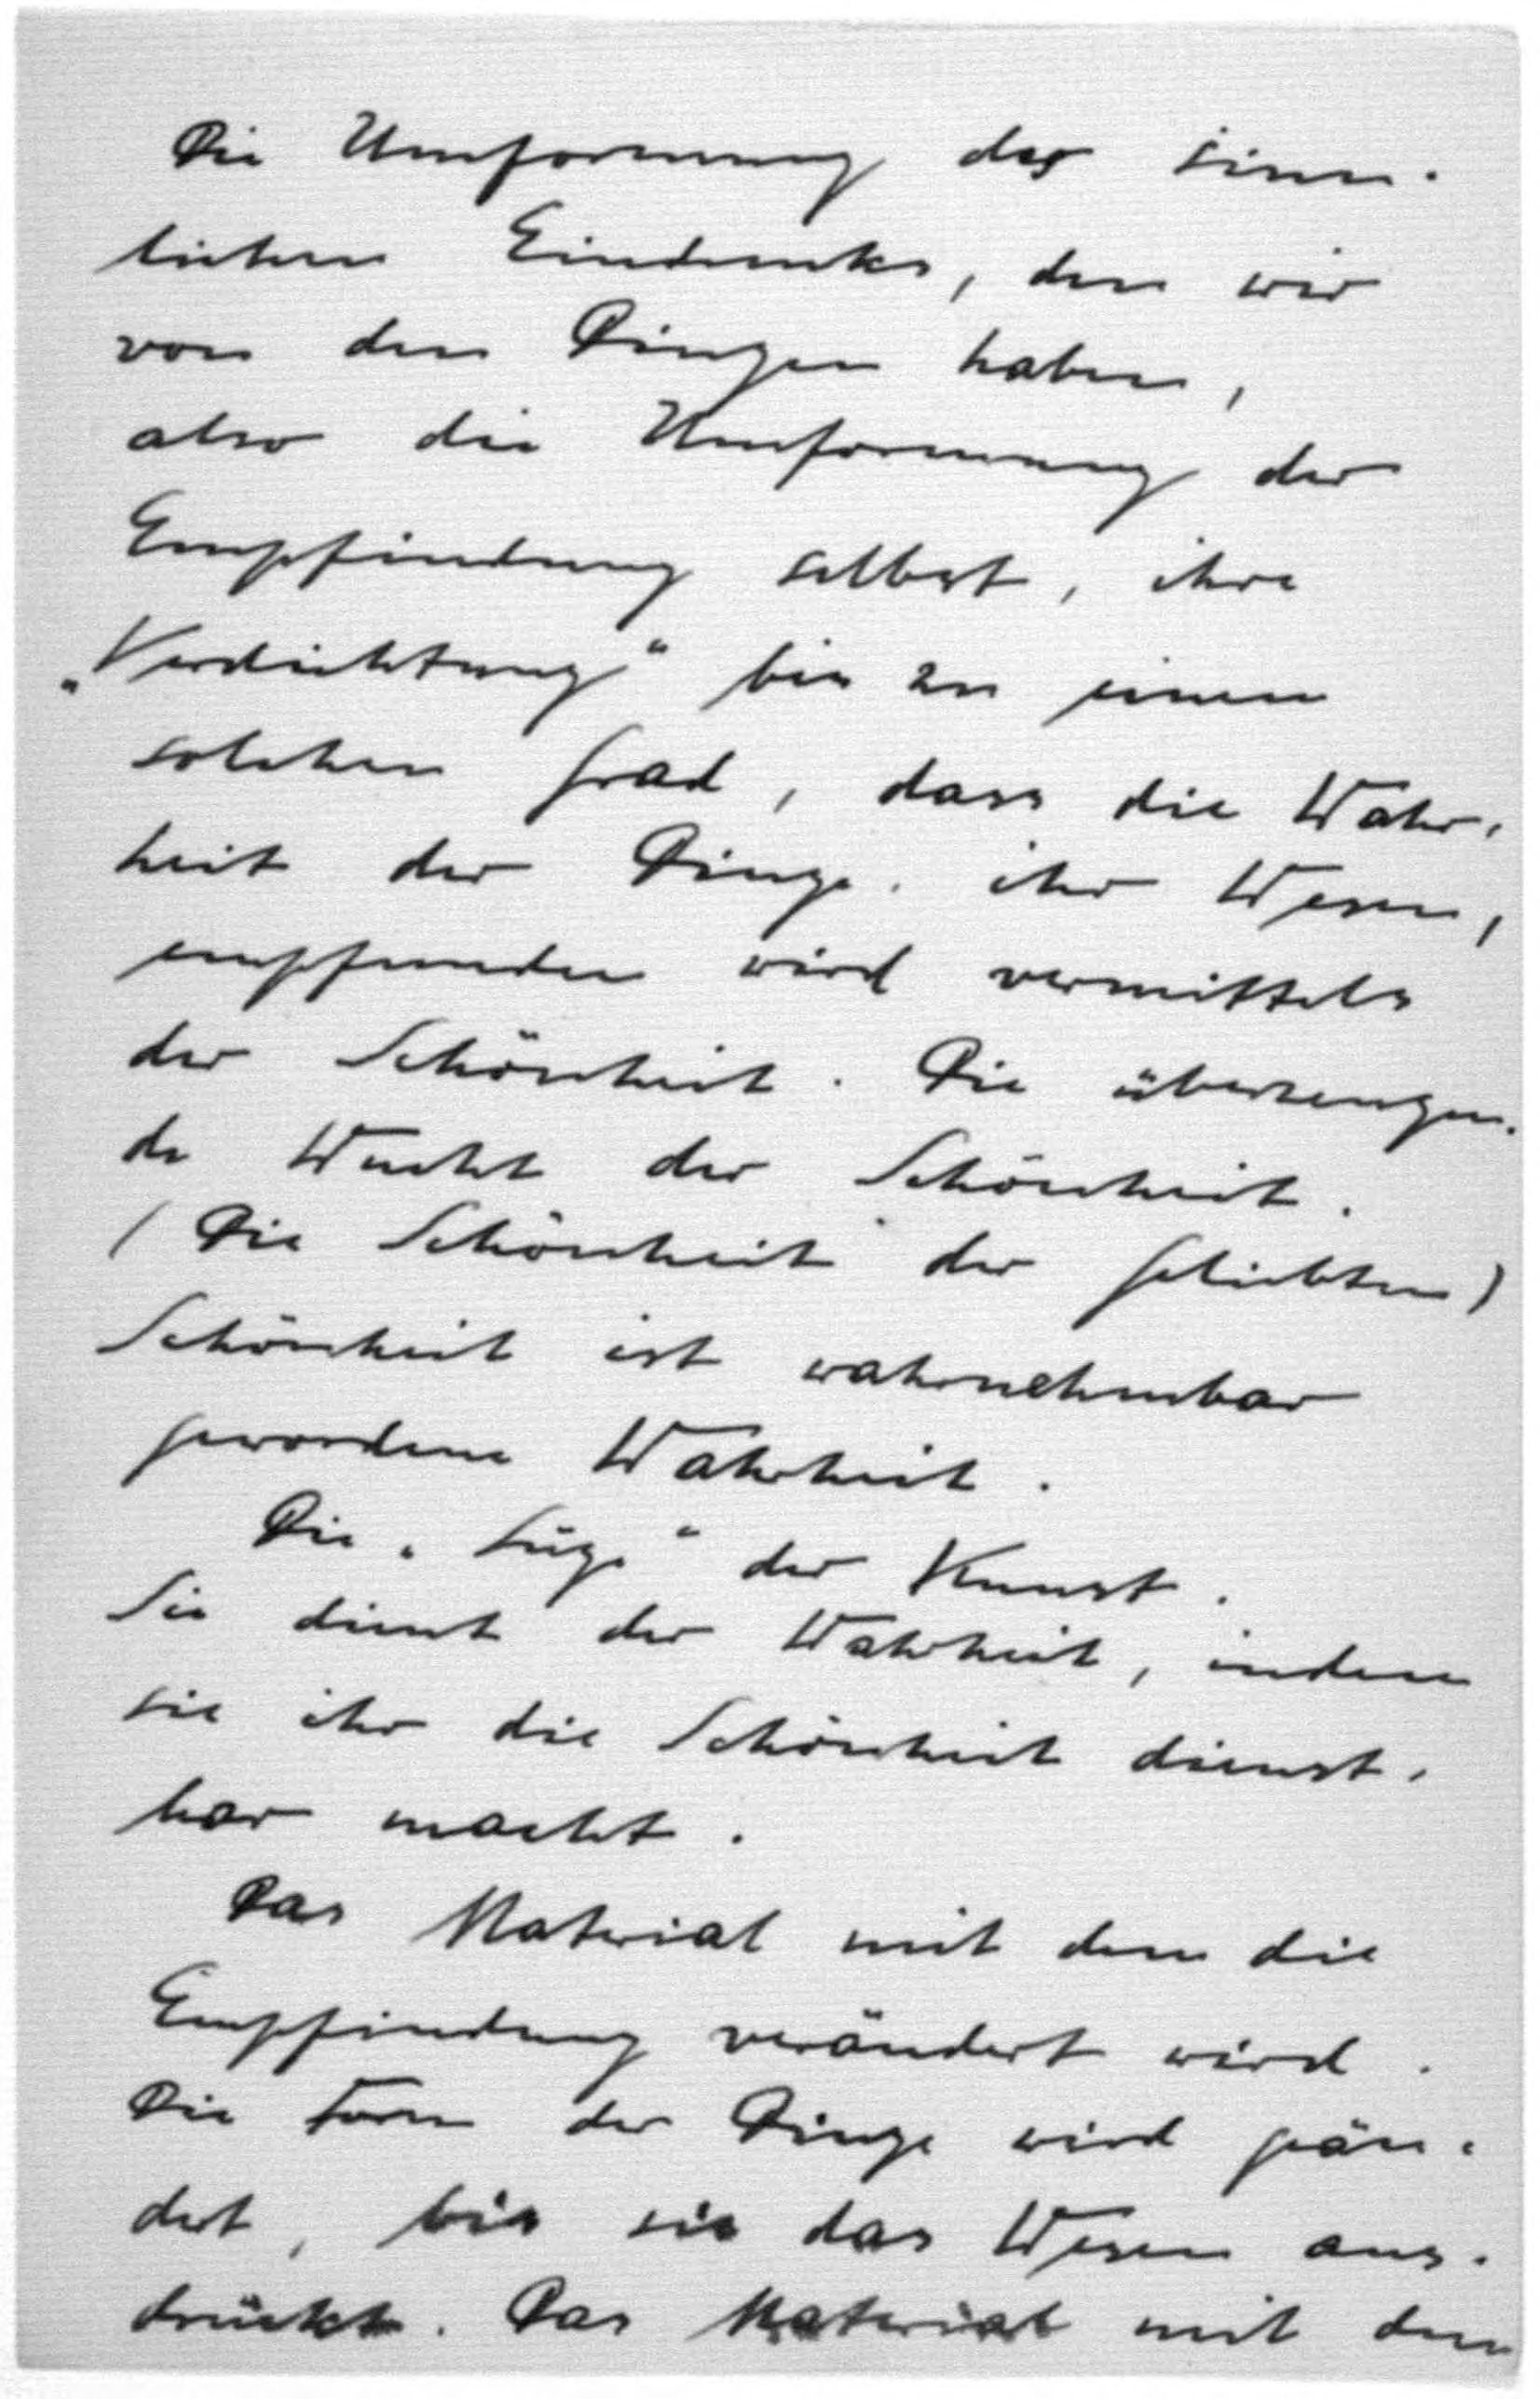 Die Umformung des sinn-
lichen Eindrucks, den wir
von den Dingen haben,
also die Umformung der
Empfindung selbst, ihre
„Verdichtung“ bis zu einem
solchen Grad, dass die Wahr-
heit der Dinge. ihr Wesen,
empfunden wird vermittels
der Schönheit. Die überzeugen-
de Wucht der Schönheit.
(Die Schönheit der Geliebten)
Schönheit ist wahrnehmbar
gewordene Wahrheit.
Die „Lüge“ der Kunst.
Sie dient der Wahrheit, indem
sie ihr die Schönheit dienst-
bar macht.
Das Material mit dem die
Empfindung verändert wird.
Die Form der Dinge wird geän-
dert, bis sie das Wesen aus-
drückt. Das Material mit dem